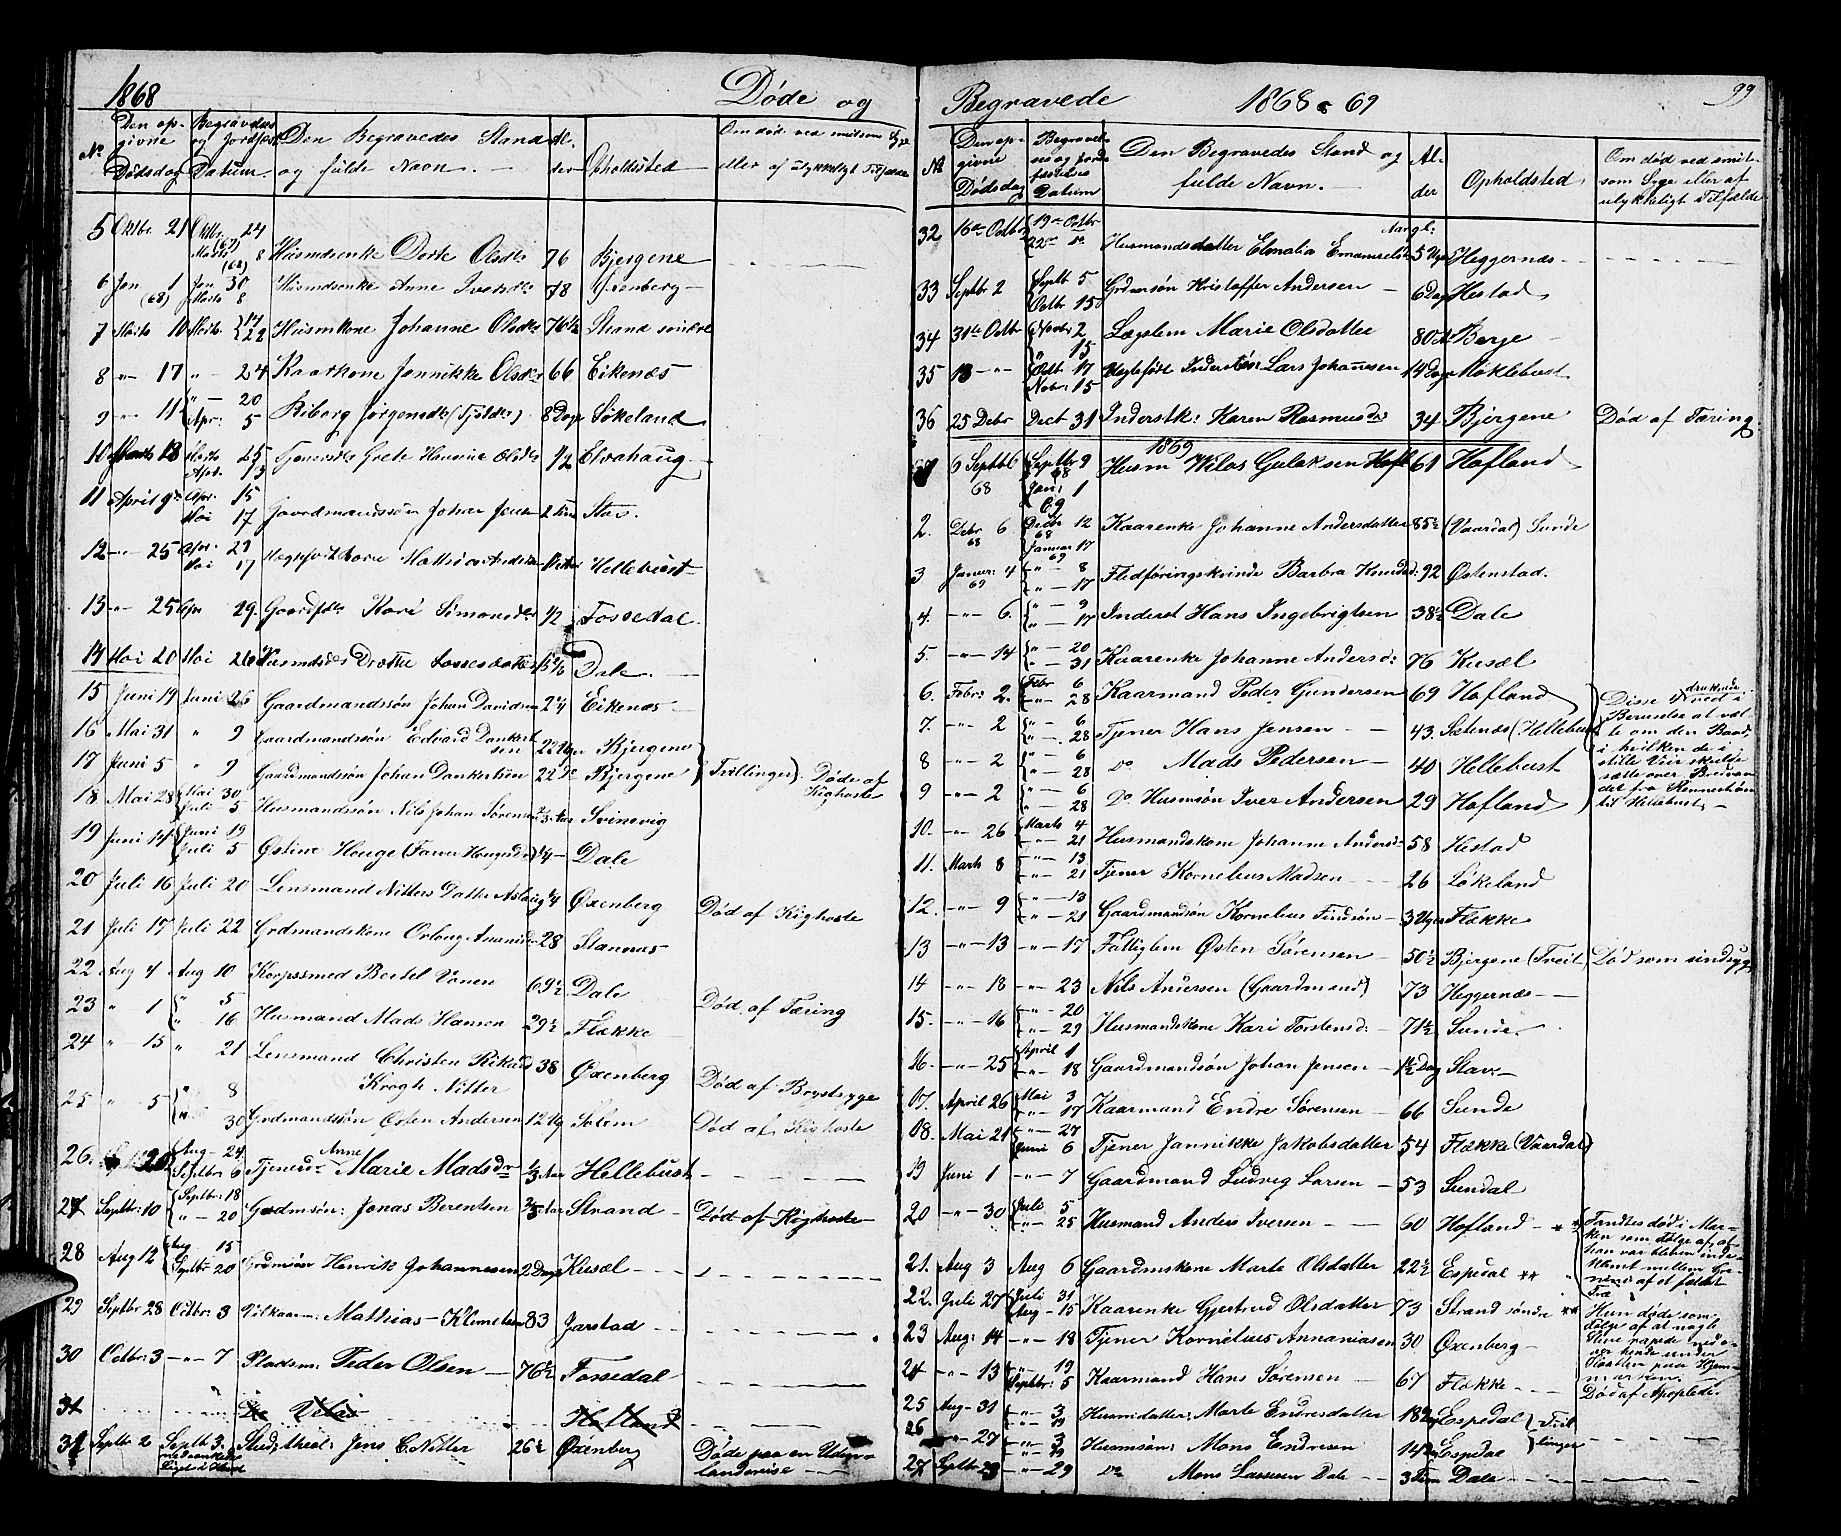 1868 Døde og
No Den opgivne Dødsdag Begravelses og Jordfæst. Datum. Den Begravedes Stand og fulde Navn. Alder Opholdssted Om død ved smitsom Syge eller af ulykkeligt Tilfælde
5 Oktbr. 21 Oktbr. 24 Marts 8 (68) Husmdsenke Dorte Olsdtr 76 Bjergene
6 Jan 1 (68) Jan 30 Marts 8 Husmdsenke Anne Iversdtr 78 Øxenberg
7 Marts 10 Marts 22 Husmkone Johanne Olsdtr 76½ Strand søndre
8 " 17 " 24 Kaarkone Jannikke Olsdtr 66 Eikenæs
9 " 11 " 20 Apr: 5 Riborg Jørgensdtr 8 Dage Løkeland
10 Marts 18 Marts 25 Apr. Grete 1/2 Elvahaug
11 April 9 Apr. 15 Mai 17 Gaardmandssøn Johan Jensen 2 Timer Stav.
12 " 25 Apr. 29 Mai 17 Mathias Hellebust
13 " 25 Apr 29. Kari Simonsdtr 1/2 Fossedal
14 Mai 20 Mai 26 Dale.
15 Juni 19 Juni 26 Gaardmandssøn Johan Davidsen 2¼ Eikenæs
16 Mai 31 " 9 Gaardmandssøn Edvard Dankertsen 22 Uger Bjergene
17 Juni 5 " 9 Gaardmandssøn Johan Dankertsen 22 Do Bjergene (Tvillinger) Døde af Kighoste
18 Mai 28 Mai 30 Juli 5 Husmandssøn Nils Johan Sørensen Aar Svinevig
19 Juni 14 Juni 19 Juli 5 Østine Hauge ¼ Dale
20 Juli 16 Juli 20 Lensmand Nitters Datter Aslaug ¼ Øxenberg Død af Kighoste
21 Juli 17 Juli 22 Grdmandskone 28 Stannæs
22 Aug 4 Aug 10 Korpssmed Bertel Vonen 69½ Dale
23 " 1 " 5 " 16 Husmand Mads Hansen 29½ Flække Død af Tæring
24 " 15 " 21 Lensmand Christen Rikard Krogh Nitter 38 Øxenberg Død af Brystsyge
25 " 5 " 8 " 30 Grdmandssøn Østen Andersen 12 Ug Solem Død af Kighoste
26. 20 Aug 24 Septbr 6 Tjenesdr Anne Marie Madsdr ⅓ Aar Hellebust
27 Septbr: 10 Septbr: 18 " 20 Grdmsøn: Jonas Berentsen Aar Strand Død af Kighoste
28 Aug 12 Aug 15 Septbr 20 Grdmsøn Henrik Johannesen 2 Dage Kusæl
29 Septbr 28 Octbr: 3 Vilkaarm: Mathias Klemetsen 83 Jarstad
30 Octbr: 3 " 7 Pladsm: Peder Olsen 76½ Fossedal
31 Nilas Hofland
31 Septbr 2 Septbr 3. Stud. theol: Jens C. Nitter 26½ Øxenberg Døde paa en Udenlandsreise
Begravede 1868 & 69 99
No Den opgivne Dødsdag Begravelses og Jordfæstelses Datum Den Begravedes Stand og fulde Navn. Alder Opholdsted Om død ved smitsom Syge eller af ulykkeligt Tilfælde
32 16de Octbr 19de Octbr 22de do Husmandsdatter Elmalia Emanuelsdtr 5 Uger Heggernæs
33 Septbr 2 Septb 5 Octb 15 Grdmsøn Kristoffer Andersen 6 Dag Hestad
34 31te Octbr Novbr 2 " 15 Lægslem Marie Olsdatter 80 Berje
35 13 " Octb 17 Novbr: 15 Uægtefødt Inderstsøn: Lars Johannesen 14 Dage Møklebust
36 25 Debr Dect 31 Inderstk: Karen Rasmusdr 34 Bjergene Død af Tæring
1869
6 Septb 68 Septbr 9 68 Jan: 1 69 Husm Nilas Gulaksen Hofl 61 Hofland
2. Debr 6 68 Decbr 12 68 Januar 17 69 Kaarenke Johanne Andersdatter 85½ (Vaardal) Sunde
3 Januar 4 69 " 8 " 17 Flidføringskvinde Barbra Knudsd: 92 Østenstad.
4. " 6. " 9 " 17 Inderst Hans Ingebrigtsen 38½ Dale
5. " 14 " 20 " 31 Kaarenke Johanne Andersd: 76 Kusæl
6. Febr: 2. Febr 6 " 28 Kaarmand Peder Gundersen 69 Hofland
7. " 2 " 6 " 28 Tjener Hans Jensen 43. Sætenæs (Hellebust)
8 " 2 " 6 " 28 Do Mads Pedersen 40 Hellebust
9 " 2 " 6 " 28 Do Husmsøn Iver Andersen 29 Hofland
Disse 4 druknede ved i Beruselse at vælte om den Baad, i hvilken de i stille Veir skulde sætte over fra til Hellebust
10. " 26 Marts 4 " 21 Husmandskone Johanne Andersd 58 Hestad
11. Marts 8 " 13 " 21 Tjener Kornelius Madsen 26 Løkeland
12. " 9 " 13 " 21 Gaardmandsøn Kornelius Findsøn 3 Uger Flække
13 " 13 " 17 Fattiglem Østen Sørensen 50½ Bjergene (Tveit) Død som sindsyg
14 " 18 " 23 Nils Andersen (Gaardmand) 73 Heggernæs
15. " 16 " 20 " 29 Husmandskone Kari Torstensd: 71½ Sunde
16. " 25 April 1 " 18 Gaardmandsøn Johan Jensen 1½ Dag Stav
17. April 26 Mai 3 " 17 Kaarmand Endre Sørensen 66 Sunde
18. Mai 21 " 27 Juni 6 Tjener Jannikke Jakobsdatter 54 Flække (Vaardal)
19 Juni 1 " 7 Gaardmand Ludvig Larsen 53 Sundal
20 " 30 Juli 5 " 25 Husmand Anders Iversen 60 Hofland * Fandtes død i Marken som Følge af, at han var bleven indeklemt mellem af et fældet Træ
21. Aug 3 Aug 6 Gaardmskone Marte Olsdatter 22½ Espedal **
22. Juli 27 Juli 31 Aug 15 Kaarenke Gjertrud Olsdatter 73 Strand søndre ** Hun døde som Følge af at nogle Stene rapede ned over hende under Slaatten paa Hjemmarken.
23 Aug: 14 " 18 Tjener Kornelius Annaniasen 30 Øxenberg
24 " 13 " 19 Septbr: 5 Kaarmand Hans Sørensen 67 Flække Død af Apoplexi.
25 Aug 31 " 3 " 19 Husmdatter: Marte Endresdatter 18 Espedal Tvillinger
26 " 27 " 3 " 19 Husmsøn: Mons Endresen 14 Espedal
27 Septbr 23 " 29 Do Mons Lassesen Dale 3 Tim Dale